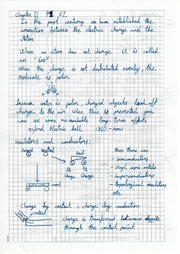 Chapter 21
In the past century we have established the
connection between the electric charge and the
Atom
When an atom has net charge it is called
an "ion"
When the charge is not distributed evenly, the
molecule is polar.
because water is polar, charged objects lead off
charge to the air. When this is prevented you
can see some remarkable long term effects
oxford electric bell
insulators and conductors:
then there are
- semiconductors
- superconductors
etc.
Charge by contact : charge by conduction
contact
Charge is transferred between objects
through the contact point